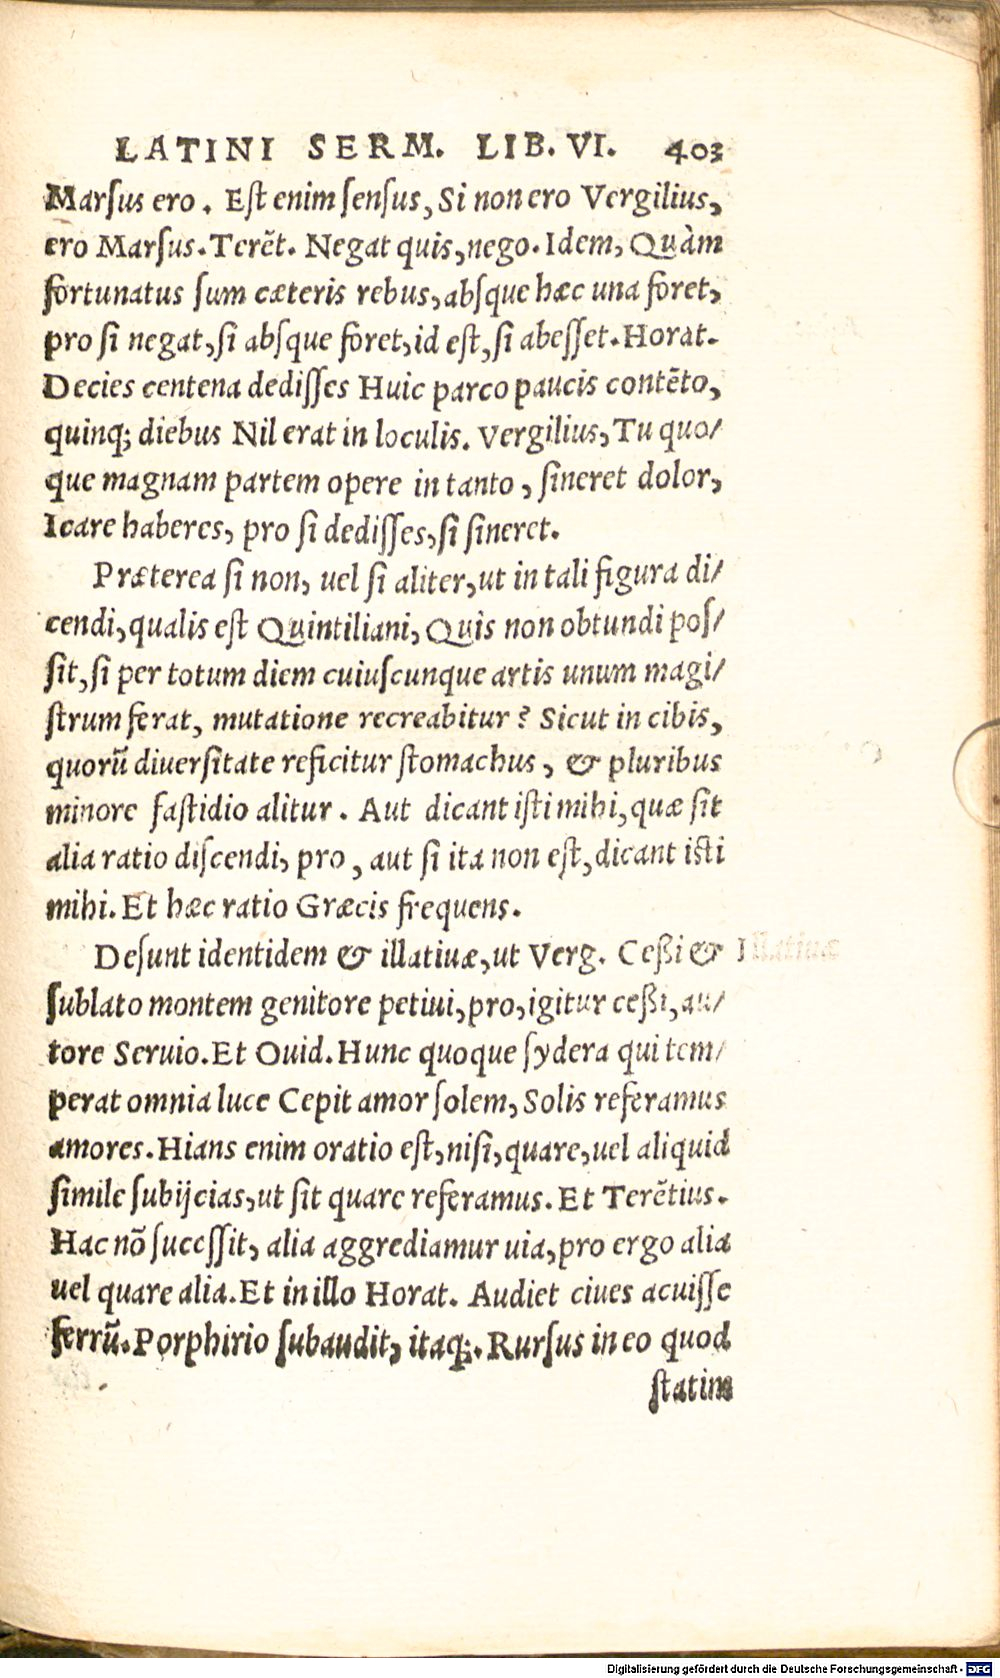 LATINI SERM. LIB. VI. 403
Marſus ero. Eſt enim ſenſus, Si non ero Vergilius,
ero Marſus. Terẽt. Negat quis, nego. Idem, Quàm
fortunatus ſum cæteris rebus, abſque hæc una foret,
pro ſi negat, ſi abſque foret, id eſt, ſi abeſſet. Horat.
Decies centena dediſſes Huic parco paucis contẽto,
quinq; diebus Nil erat in loculis. Vergilius, Tu quo/
que magnam partem opere in tanto, ſineret dolor,
Icare haberes, pro ſi dediſſes, ſi ſineret.
Præterea ſi non, uel ſi aliter, ut in tali figura di/
cendi, qualis eſt Quintiliani, Quis non obtundi poſ/
ſit, ſi per totum diem cuiuſcunque artis unum magi/
ſtrum ferat, mutatione recreabitur? Sicut in cibis,
quorũ diuerſitate reficitur ſtomachus, & pluribus
minore faſtidio alitur. Aut dicant iſti mihi, quæ ſit
alia ratio diſcendi, pro, aut ſi ita non eſt, dicant iſti
mihi. Et hæc ratio Græcis frequens.
Deſunt identidem & illatiuæ, ut Verg. Ceßi & Illatiuæ
ſublato montem genitore petiui, pro, igitur ceßi, au/
tore Seruio. Et Ouid. Hunc quoque ſydera qui tem/
perat omnia luce Cepit amor ſolem, Solis referamus
amores. Hians enim oratio eſt, niſi, quare, uel aliquid
ſimile ſubijcias, ut ſit quare referamus. Et Terẽtius.
Hac nõ ſucceſſit, alia aggrediamur uia, pro ergo alia
uel quare alia. Et in illo Horat. Audiet ciues acuiſſe
ferrũ. Porphirio ſubaudit, itaq;. Rurſus in eo quod
ſtatim
Digitalisierung gefördert durch die Deutsche Forschungsgemeinschaft - DFG